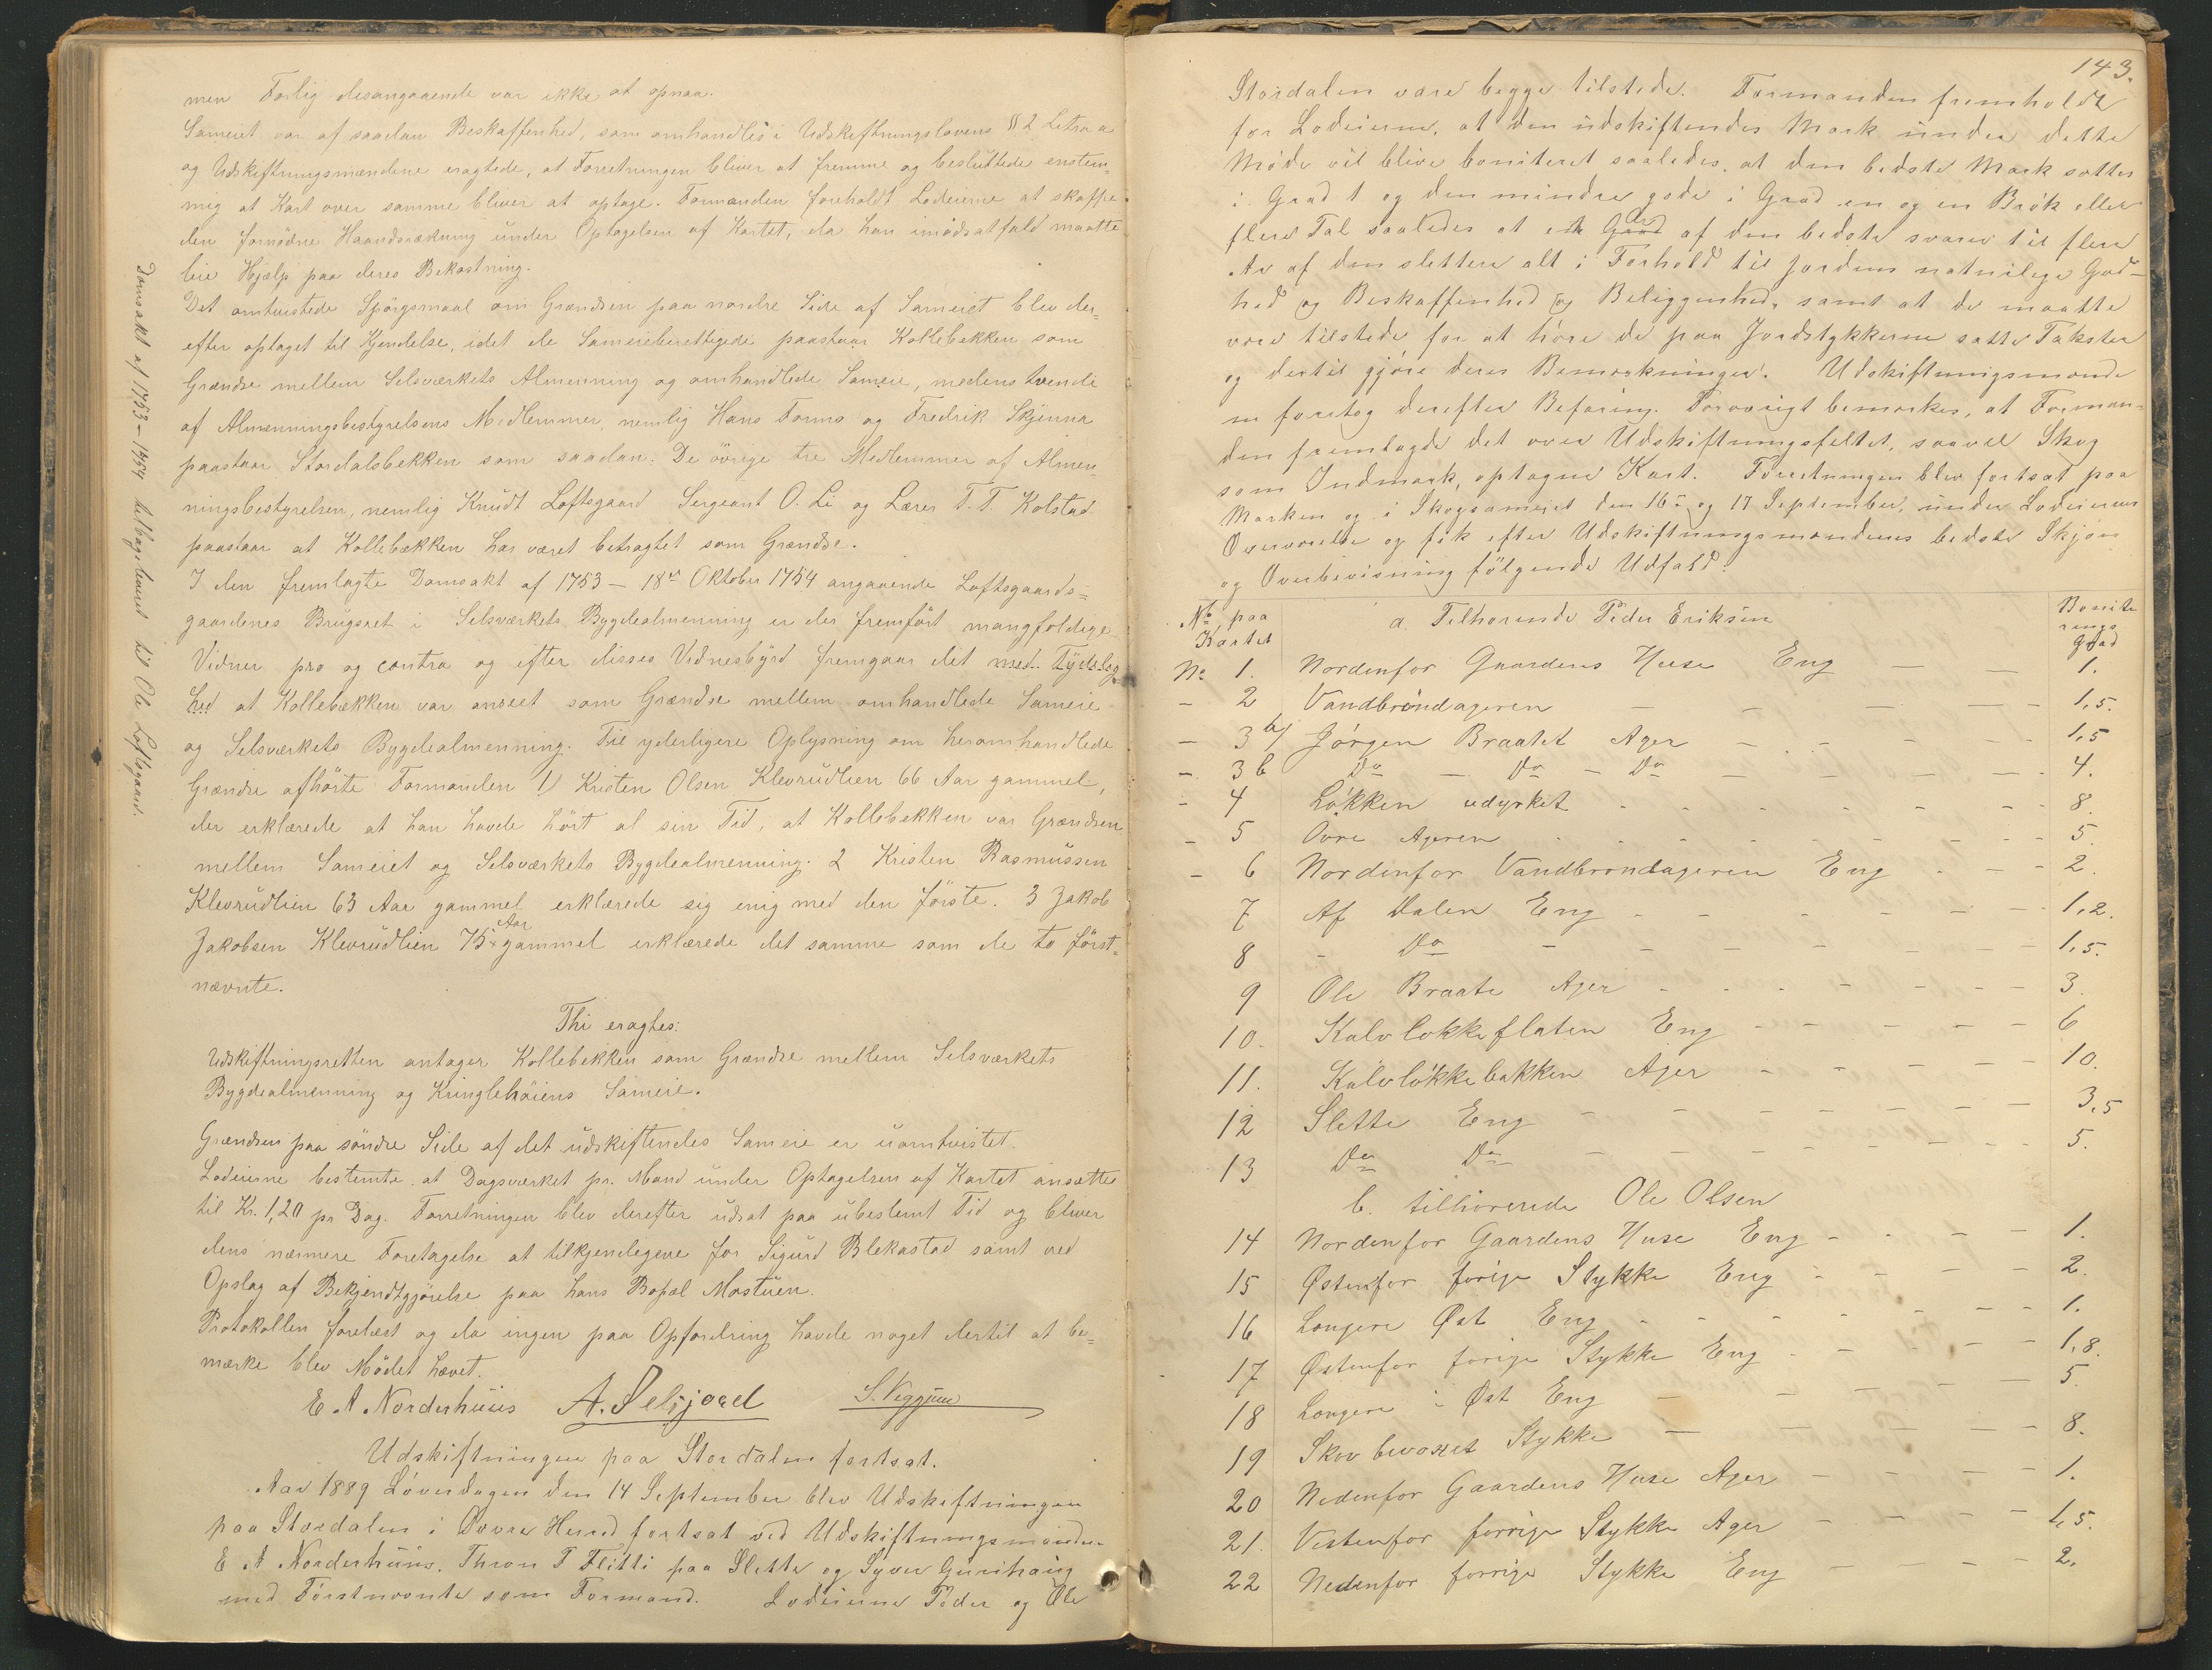 men Forlig desangaaende var ikke at opnaa.
Sameiet var af saadan Beskaffenhed, som omhandles i Udskiftningslovens § 2 Litra a
og Udskiftningsmændene eragtede, at Forretningen bliver at fremme og besluttede enstem-
mig at Kart over samme bliver at optage. Formanden foreholdt Lodeierne at skaffe
den fornødne Haandsrækning under Optagelsen af Kartet, da han imodsatfald maatte
leie Hjælp paa deres Bekostning.
Det omtvistede Spörgsmaal om Grændsen paa nordre Side af Sameiet blev der-
efter optaget til Kjendelse, idet de Sameieberettigede paastaar Kollebekken som
Grændse mellem Selsværkets Almenning og omhandlede Sameie, medens tvende
af Almenningsbestyrelsens Medlemmer, nemlig Hans Formo og Fredrik Skjenna
paastaar Stordalsbekken som saadan. De övrige tre Medlemmer af Almen-
ningsbestyrelsen, nemlig Knudt Loftsgaard Sergeant O. Li og Lærer T. T. Kolstad
paastaar at Kollebækken har været betragtet som Grændse.
I den fremlagte Domsakt af 1753 – 18de Oktober 1754 angaaende Loftsgaards-
gaardenes Brugsret i Selsværkets Bygdealmenning er der fremfört mangfoldige
Vidner pro og contra og efter disses Vidnesbyrd fremgaar det med Tydelig
hed at Kollebækken var anseet som Grændse mellem omhandlede Sameie
og Selsværkets Bygdealmenning. Til yderligere Oplysning om heromhandlede
Grændse afhörte Formanden 1) Kristen Olsen Klevrudlien 66 Aar gammel,
der erklærede at han havde hört al sin Tid, at Kollebekken var Grændsen
mellem Sameiet og Selsværkets Bygdealmenning. 2 Kristen Rasmussen
Klevrudlien 63 Aar gammel erklærede sig enig med den förste. 3 Jakob
Jakobsen Klevrudlien 75 Aar gammel erklærede det samme som de to först-
nævnte.
Thi eragtes:
Udskiftningsretten antager Kollebekken som Grændse mellem Selsværkets
Bygdealmenning og Kringlehöiens Sameie.
Grændsen paa söndre Side af det udskiftendes Sameie er uomtvistet.
Lodeierne bestemte at Dagsværket pr. Mand under Optagelsen af Kartet ansættes
til Kr. 1,20 pr Dag. Forretningen blev derefter udsat paa ubestemt Tid og bliver
dens nærmere Foretagelse at tilkjendegeve for Sigurd Blekastad samt ved
Opslag af Bekjendtgjörelse paa hans Bopæl Mostuen.
Protokollen forelæst og da ingen paa Opfordring havde noget dertil at be-
mærke blev Mödet hævet.
E A Norderhuus A. Selsjord S. Veggum
Udskiftningen paa Stordalen fortsat.
Aar 1889 Löverdagen den 14 September blev Udskiftningen
paa Stordalen i Dovre Herred fortsat ved Udskiftningsmænden
E A Norderhuus, Thron T Flitti paa Slette og Syver Gunihaug
med Förstnævnte som Formand. Lodeierne Peder og Ole
Domsakt af 1753–1754 tilbageleveret til Ole Loftsgaard.
143.
Stordalen vare begge tilstede. Formanden fremholdt
for Lodeierne, at den udskiftendes Mark under dette
Möde vil blive boniteret saaledes, at den bedste Mark sættes
i Grad 1 og den mindre gode i Grad en og en Brök eller
flere Tal saaledes at et Ar af den bedste svarer til flere
Ar af den slettere alt i Forhold til Jordens naturlige God-
hed og Beskaffenhed og Beliggenhed, samt at de maatte
være tilstede for at höre de paa Jordstykkerne satte Takster
og dertil gjöre deres Bemærkninger. Udskiftningsmænde
ne foretog derefter Befaring. Forövrigt bemærkes, at Forman-
den fremlagde det over Udskiftningsfeltet, saavel Skog
som Indmark, optagne Kart. Forretningen blev fortsat paa
Marken og i Skogsameiet den 16de og 17 September, under Lodeiernes
Overværelse og fik efter Udskiftningsmændenes bedste Skjön
og Overbevisning fölgende Udfald:
No paa Kartet a. Tilhorende Peder Eriksen Boniterings Grad
No 1. Nordenfor Gaardens Huse Eng — — 1.
– 2 Vandbröndageren — — — — 1,5.
– 3 a/ Jörgen Braatet Ager – – – – 1,5
– 3 b Do – Do – Do – – – 4.
– 4 Lökken udyrket – – – – – 8.
– 5 Övre Ageren – – – – – 5.
– 6 Nordenfor Vandbrondageren Eng – – – 2.
7 Af Dalen Eng – – – – – 1,2.
8 – Do – – – – – 1,5.
9 Ole Braate Ager – – – – – 3.
10. Kalvlokkeflaten Eng – – – – 6
11. Kalvlökkebakken Ager – – – – 10.
12 Slette Eng – – – – – 3,5
13 Do Do – – – – – 5.
b. tilhörende Ole Olsen
14 Nordenfor Gaardens Huse Eng – – – 1.
15 Østenfor forige Stykke Eng – – – 2.
16 Længere Øst Eng – – – – 1.
17 Østenfor forige Stykke Eng – – – 1,8.
18 Længere i Øst Eng – – – – 5.
19 Skovbevoxet Stykke – – – – 8.
20 Nedenfor Gaardens Huse Ager – – – 1.
21. Vestenfor forrige Stykke Ager – – – 1,5.
22 Nedenfor forrige Stykke Eng – – – 2.